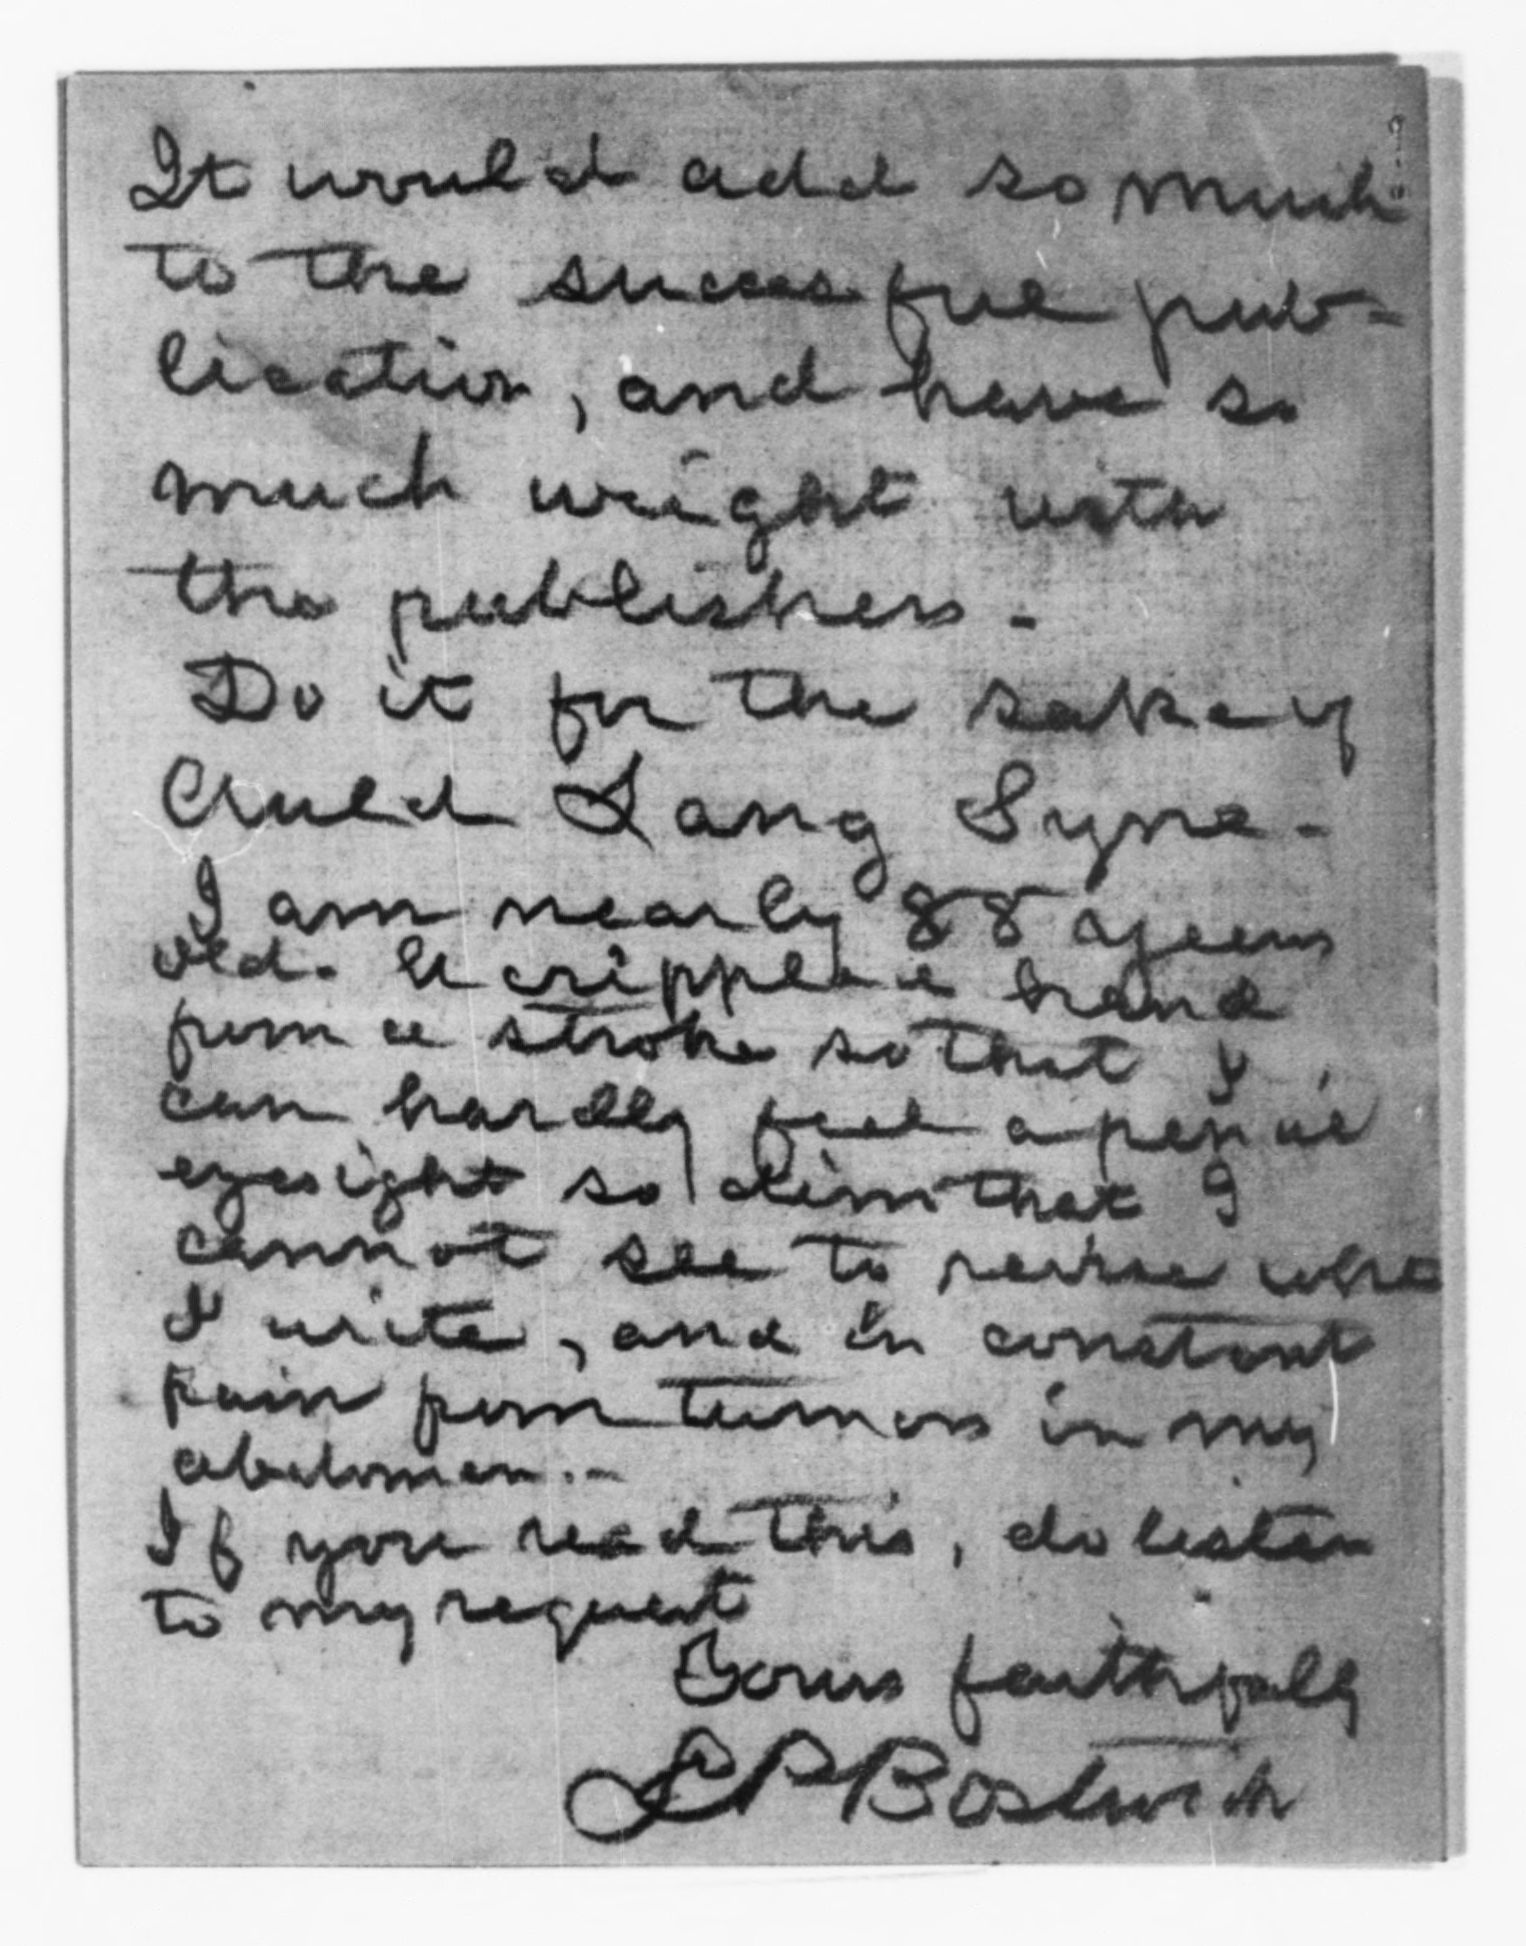 It would add so much
to the succesful pub-
lication, and have so
much weight with
the publishers -
Do it for the sake of
Auld Lang Syne -
I am nearly 88 years
old. A crippled hand
from a stroke so that I
can hardly feel a pencil
eyesight so dim that I
cannot see to revise what
I write, and in constant
pain from tumors in my
abdomen. -
If you read this, do listen
to my request
Yours faithfully
L P Bostwick